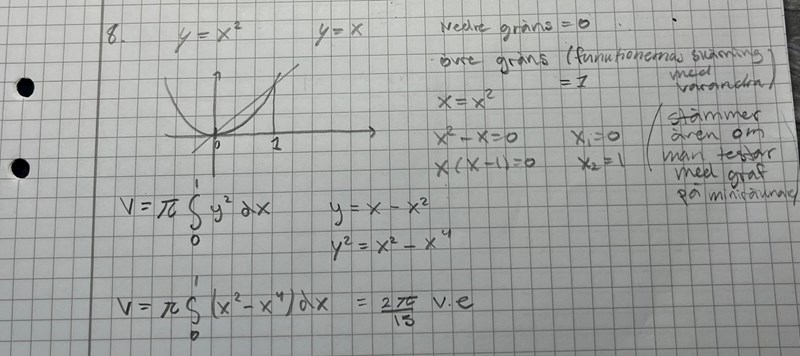 8. y = x² y = x
Nedre gräns = 0
övre gräns (funktionernas skärning med varandra) = 1
x = x²
x² - x = 0 x₁ = 0
x(x-1) = 0 x₂ = 1
(stämmer
även om
man testar
med graf
på miniräknare)
0 1
V = π ∫₀¹ y² dx y = x - x²
y² = x² - x⁴
V = π ∫₀¹ (x² - x⁴) dx = 2π/15 v.e